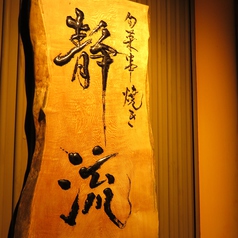 旬菜串焼き
静流